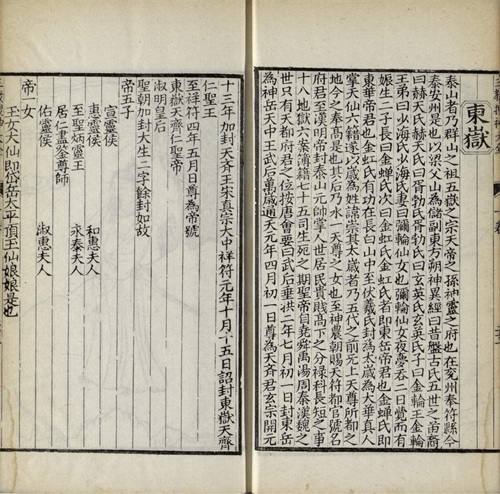 東嶽
泰山者乃群山之祖五嶽之宗天帝之孫神靈之府也在兖州奉符縣今
泰安州是也以梁父山為儲副東方朔神異經曰昔盤古氏五世之苗裔
曰赫天氏赫天氏曰胥勃氏胥勃氏曰玄英氏玄英氏子曰金輪王金輪
王弟曰少海氏少海氏妻曰彌輪仙女也彌輪仙女夜夢吞二日覺而有
娠生二子長曰金蟬氏次曰金虹氏金虹氏者即東岳帝君也金蟬氏即
東華帝君也金虹氏有功在長白山中至伏羲氏封為太歲為大華真人
掌天仙六籍遂以歲為姓諱崇其太歲者乃五代之前无上天尊所都之
地今之奉高是也其后乃水一天尊之女也至神農朝賜天符都官號名
府君至漢明帝封泰山元帥掌人世居民貴賤高下之分禄科長短之事
十八地獄六案簿籍七十五司生死之期聖帝自堯舜禹湯周秦漢魏之
世只有天都府君之位按唐會要曰武后垂拱二年七月初一日封東岳
為神岳天中王武后萬歲通天元年四月初一日尊為天齊君玄宗開元
十三年加封天齊王宋真宗大中祥符元年十月十五日詔封東嶽天齊
仁聖王
至祥符四年五月日尊為帝號
東嶽天齊仁聖帝
淑明皇后
聖朝加封大生二字餘封如故
帝五子
宣靈侯
惠靈侯 和惠夫人
至聖炳靈王 永泰夫人
居仁盡鉴尊師
佑靈侯 淑惠夫人
帝一女
玉女大仙即岱岳太平頂玉仙娘娘是也